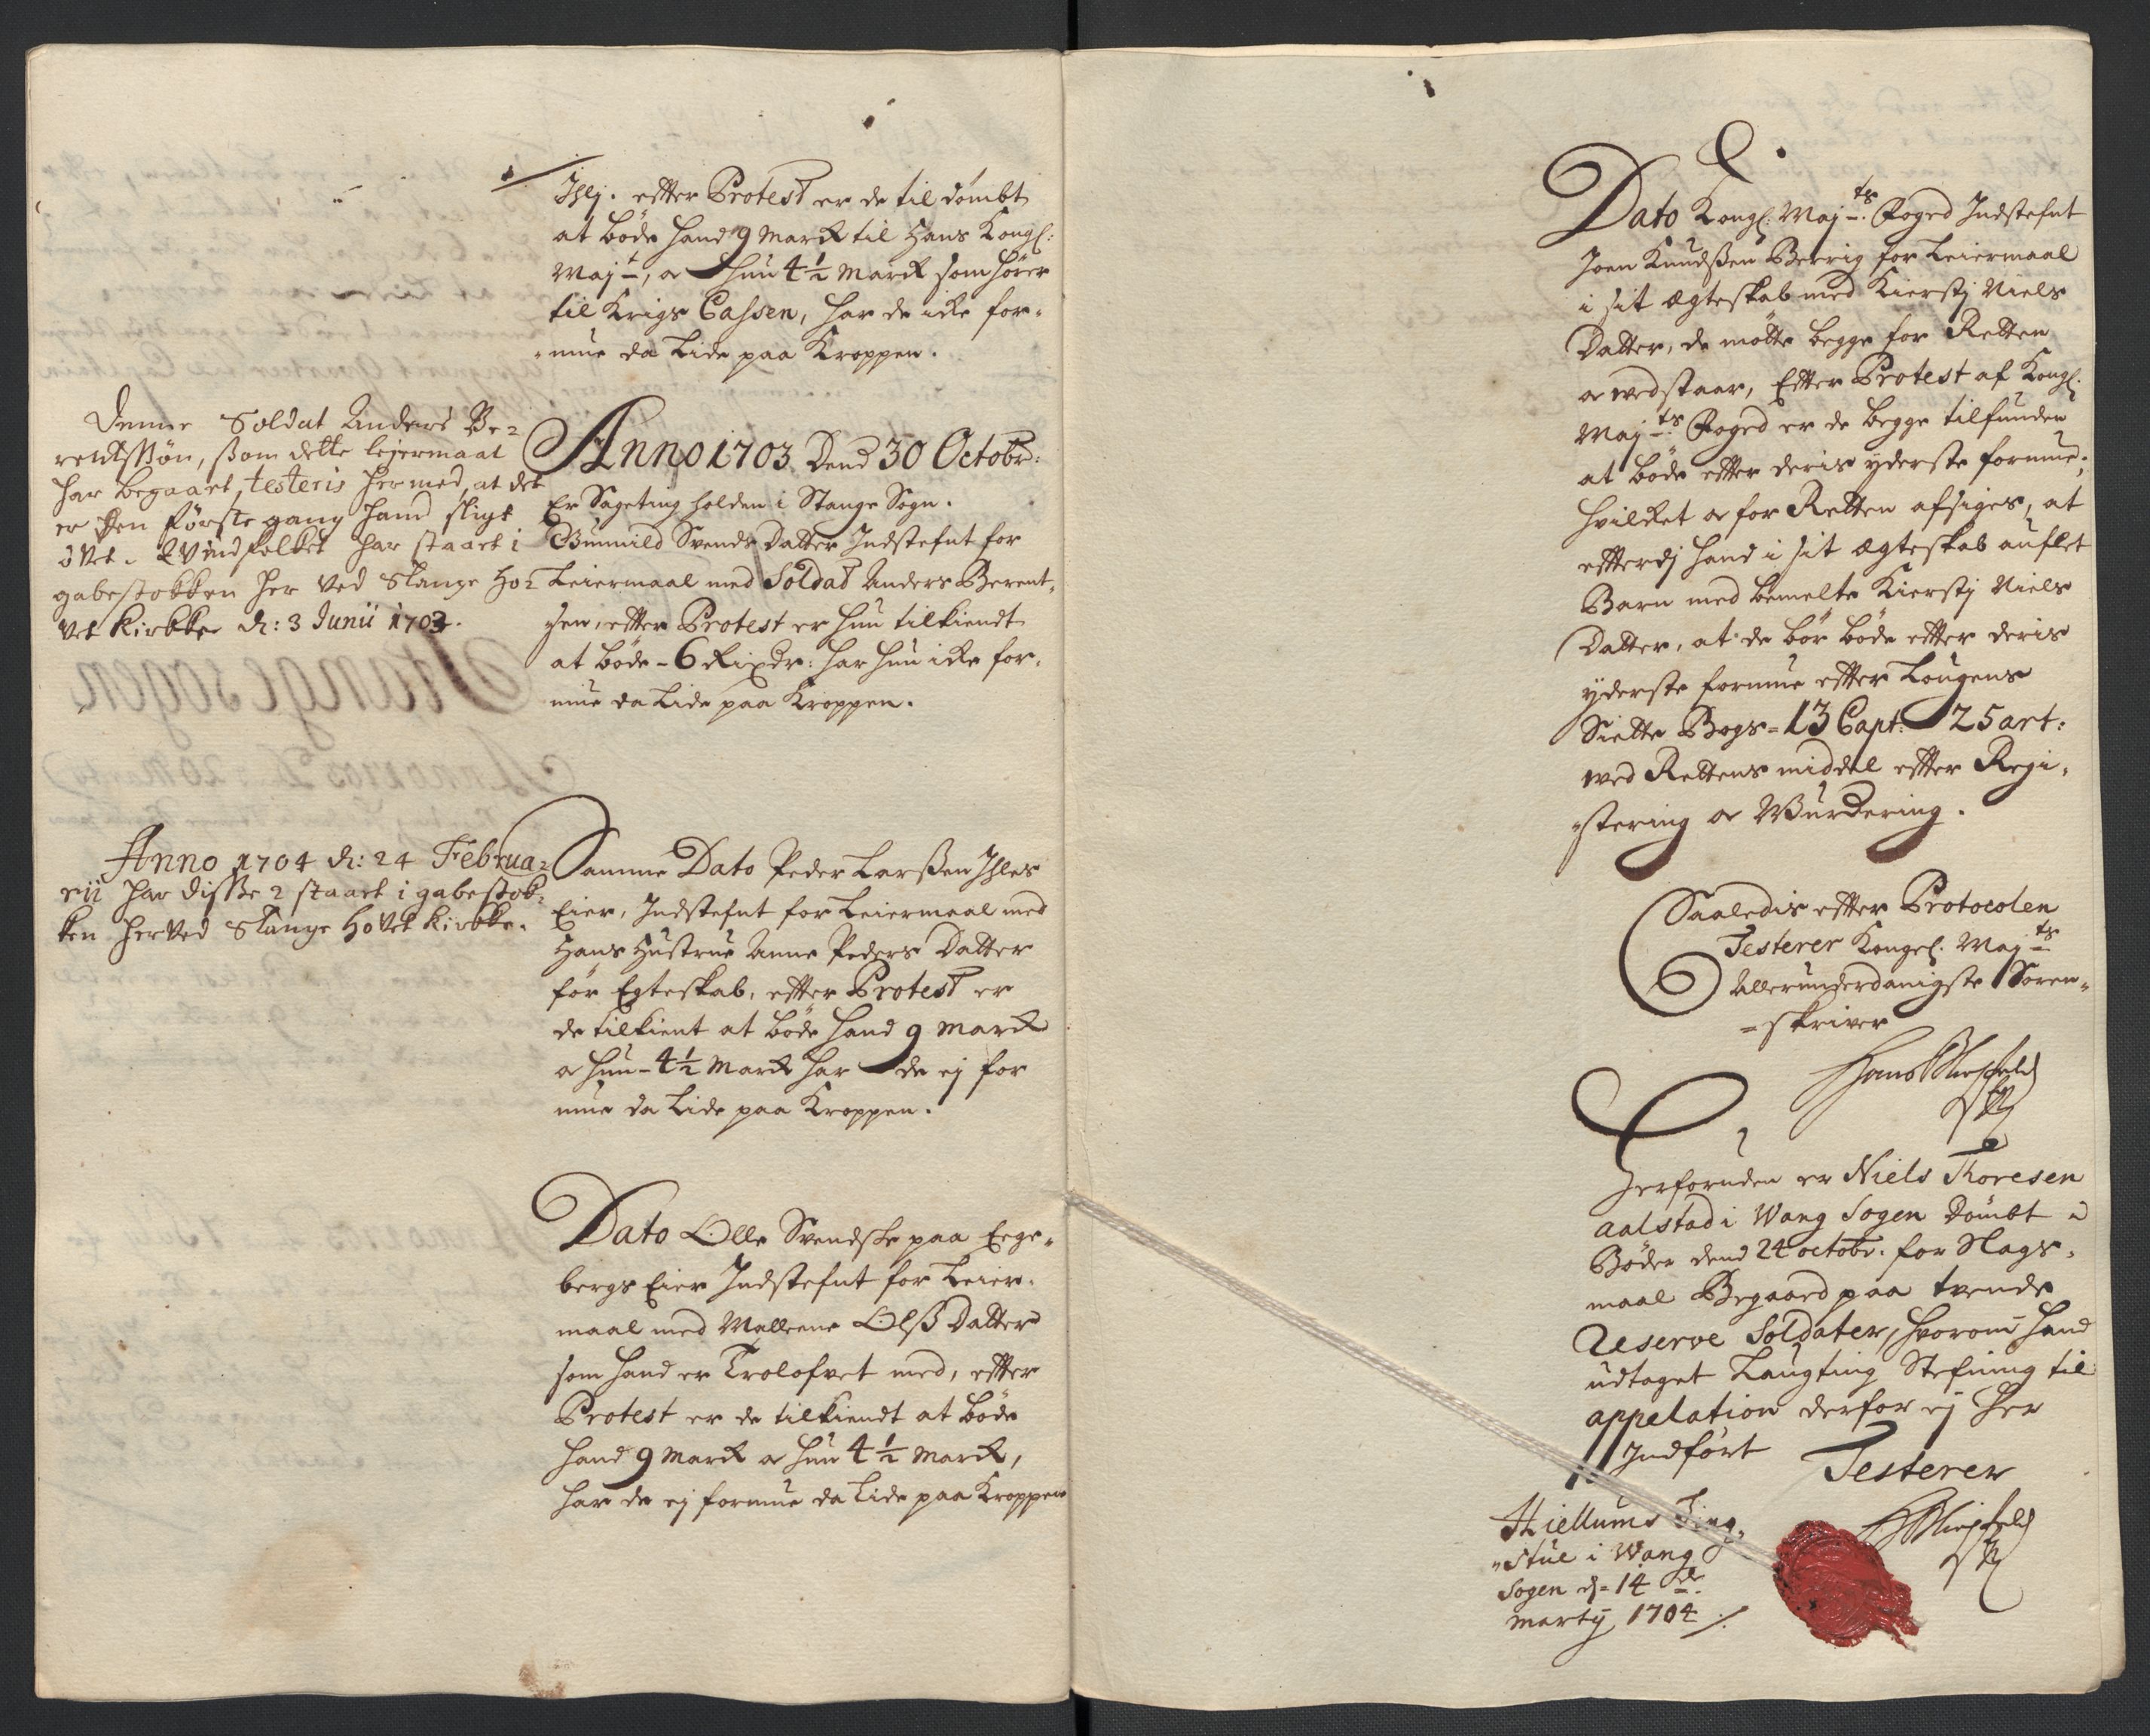 Ihlj. efter Protest er de til dömbt
at böde hand 9 Marck til Hans Kongl:
Maj t, oc hun 4½ Marck som hörer
til Krigs Cassen, har de icke for-
mue da Lide paa Kroppen.
Denne Soldat Anders Be-
rentssøn, som dette lejermaal
har begaaet, testeris hermed, at det
er den förste gang hand sligt
övet. Qvindfolket har staaet i
gabestokken her ved Stange Ho-
vet Kirkke d: 3 Junii 1703.
Anno 1703 Dend 30 Octobr:
Er Sageting holden i Stange Sogn.
Gunnild Svends Datter Indstefnt for
Leiermaal med Soldat Anders Berent-
sen, efter Protest er hun tilkiendt
at böde - 6 Rixdr: har hun icke for-
mue da Lide paa Kroppen.
Anno 1704 d: 24 Februa-
rii har disse 2 staaet i gabestok-
ken herved Stange Hovet Kirkke.
Samme Dato Peder Larssen Ihles
Eier, Indstefnt for Leiermaal med
Hans Hustrue Anne Peders Datter
för Egteskab, efter Protest er
de tilkient at böde hand 9 Marck
oc hun - 4½ Marck har de ej for
mue da Lide paa Kroppen.
Dato Olle Svendsße paa Ege-
bergs Eier Indstefnt for Leier-
maal med Malleene Olß Datter
som hand er Trolofvet med, efter
Protest er de tilkiendt at böde
hand 9 Marck oc hun 4½ Marck,
har de ej formue da Lide paa Kroppen
Dato Kongl: Maj ts Foged Indstefnt
Joen Knudssen Berrig for Leiermaal
i sit Ægteskab med Kierstj Niels
Datter, de mötte begge for Retten
oc vedstaar, Efter Protest af Kongl.
Maj ts Foged er de begge tilfunden
at böde efter deris yderste formue;
hvilket oc for Retten afsiges, at
efterdj hand i sit Ægteskab auflet
Barn med bemelte Kierstj Niels
Datter, at de bör böde efter deris
yderste formue efter Lougens
Siette Bogs - 13 Capt: 25 art:
ved Rettens middel efter Regi-
stering oc Wurdering.
Saaledis efter Protocolen
Testerer Kongel. Maj ts
Allerunderdanigste Soren-
skriver
Hans
Herforuden er Niels Thoresen
Aalstad i Wang Sogen Dömbt i
Böder dend 24 octobr. for Slags-
maal Begaaed paa tvende
Reserve Soldater, hvorom hand
udtaget Laugting Stefning til
appelation derfor ej her
Indfört Testerer
Hiellums Ting-
stue i Wang
Sogen d- 14 de
Martij 1704